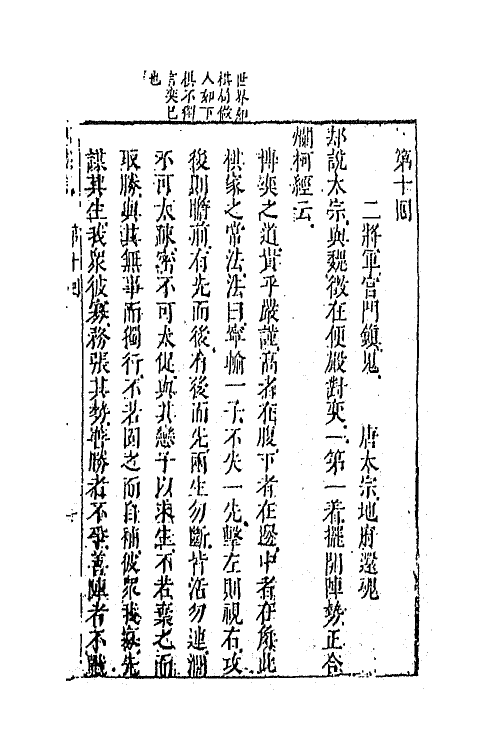 世界如
棋局做
人如下
棋不獨
言奕已
也
第十回
二將軍宮門鎮鬼 唐太宗地府還魂
却說太宗與魏徵在便殿對奕一第一着擺開陣勢正合
爛柯經云
博奕之道貴乎嚴謹高者在腹下者在邊中者在角此
棋家之常法法曰寧輸一子不失一先擊左則視右攻
後則瞻前有先而後有後而先兩生勿斷皆活勿連濶
不可太疎密不可太促與其戀子以求生不若棄之而
取勝與其無事而獨行不若固之而自補彼眾我寡先
謀其生我眾彼寡務張其勢善勝者不爭善陣者不戰
第十回